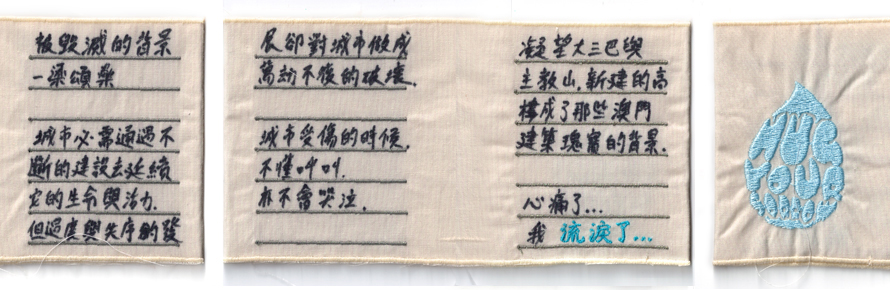 被毀滅的背景
一梁頌燊
城市必需通過不
斷的建設去延續
它的生命與活力.
但過度與失序的發
展卻對城市做成
萬劫不復的破壞.
城市受傷的時候.
不懂呼叫.
亦不會哭泣.
凝望大三巴與
主教山.新建的高
樓成了那些澳門
建築瑰寶的背景.
心痛了...
我 流淚了...
HUG
YOUR